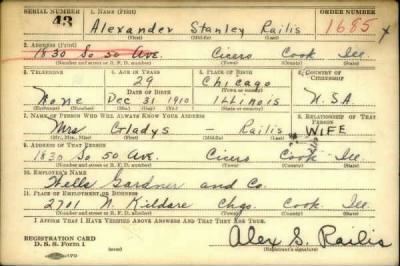 SERIAL NUMBER 1. NAME (Print) ORDER NUMBER
43 Alexander Stanley Railis 1685
(First) (Middle) (Last)
2. ADDRESS (Print)
1830 So 50 Ave. Cicero Cook Ill.
(Number and street or R. F. D. number) (Town) (County) (State)
3. TELEPHONE 4. AGE IN YEARS 5. PLACE OF BIRTH 6. COUNTRY OF CITIZENSHIP
29 Chicago
DATE OF BIRTH (Town or county)
None Dec 31 1910 Illinois U.S.A
(Exchange) (Number) (Mo.) (Day) (Yr.) (State or country)
7. NAME OF PERSON WHO WILL ALWAYS KNOW YOUR ADDRESS 8. RELATIONSHIP OF THAT PERSON
Mrs Gladys — Railis WIFE
(Mr., Mrs., Miss) (First) (Middle) (Last)
9. ADDRESS OF THAT PERSON
1830 So 50 Ave. Cicero Cook Ill.
(Number and street or R. F. D. number) (Town) (County) (State)
10. EMPLOYER'S NAME
Wells Gardner and Co.
11. PLACE OF EMPLOYMENT OR BUSINESS
2701 N. Kildare Chgo. Cook Ill.
(Number and street or R. F. D. number) (Town) (County) (State)
I AFFIRM THAT I HAVE VERIFIED ABOVE ANSWERS AND THAT THEY ARE TRUE.
REGISTRATION CARD
D. S. S. Form 1
Alex S. Railis
(Registrant's signature)